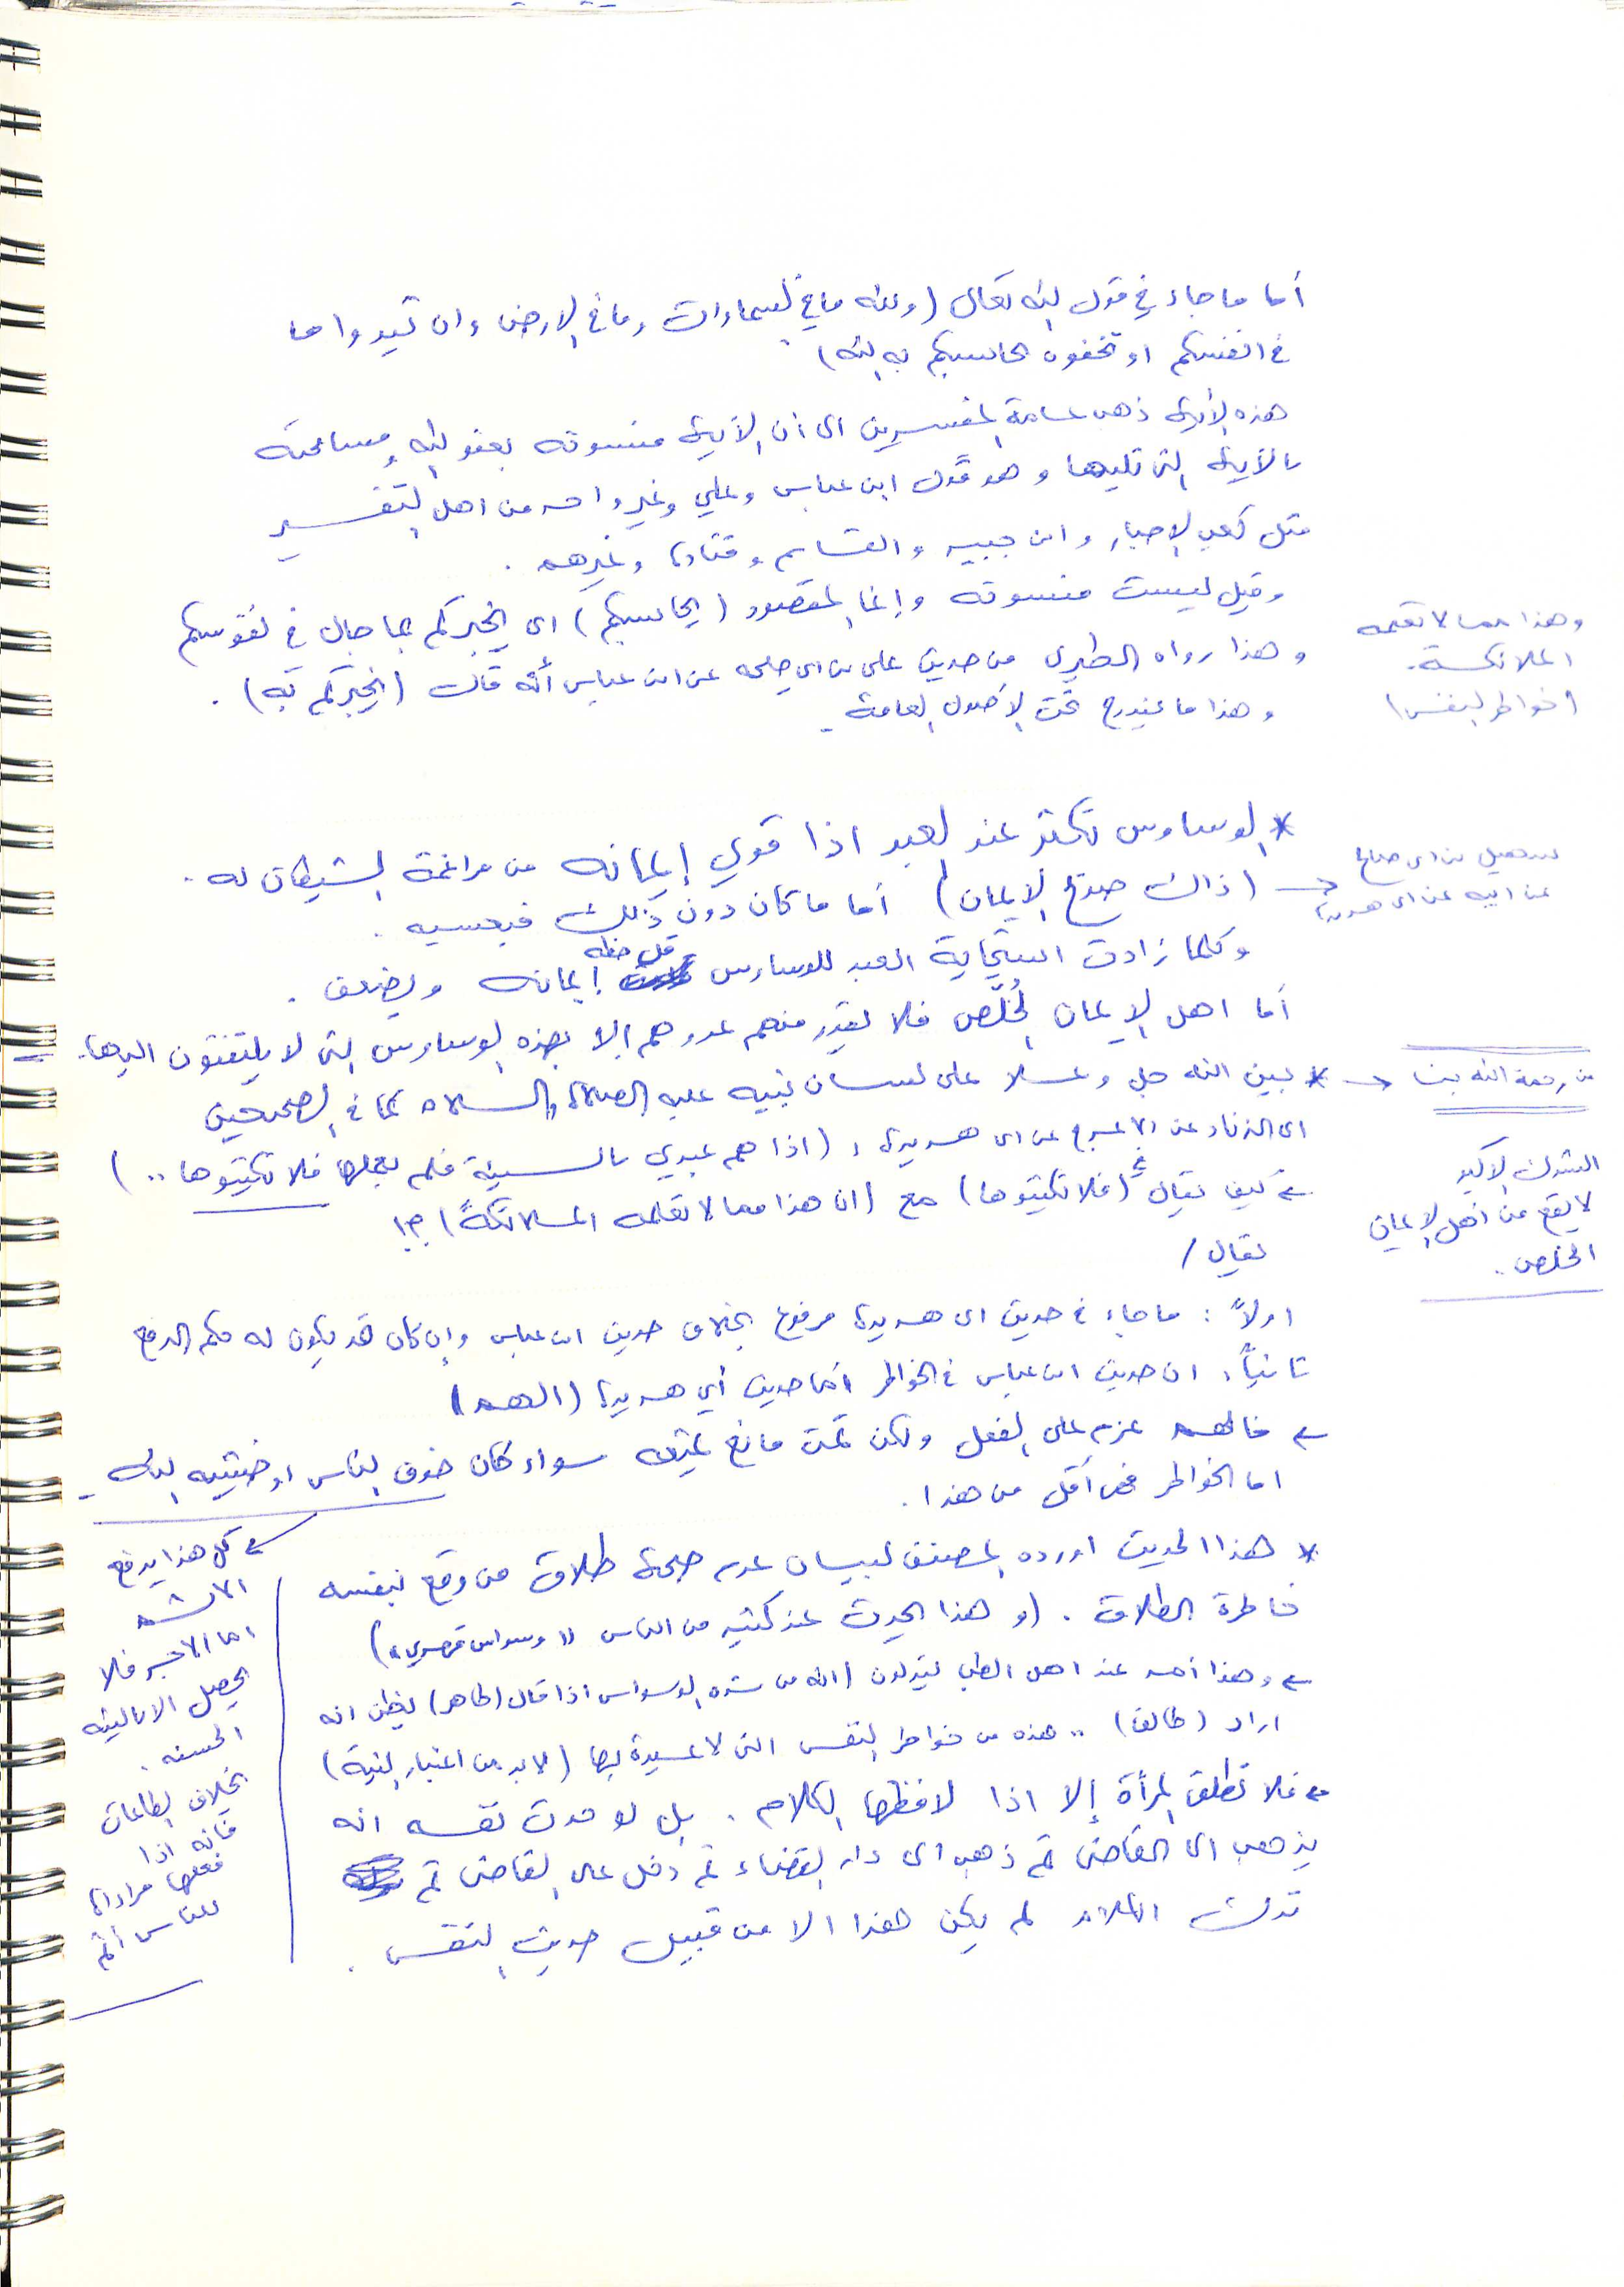 أما ما جاء في قول الله تعالى (ولله ما في السماوات وما في الارض وان تبدوا ما
في انفسكم او تخفوه يحاسبكم به الله)
هذه الآية ذهب عامة المفسرين الى أن الآية منسوخة بعفو الله ومسامحته
بالآية التي تليها وهو قول ابن عباس وعلي وغير واحد من اهل التفسير
مثل كعب الاحبار وابن جبير والقاسم وقتادة وغيرهم .
وقيل ليست منسوخة وإنما المقصود (يحاسبكم) اي يخبركم بما جال في نفوسكم
وهذا رواه الطبري من حديث علي بن ابي طلحه عن ابن عباس أنه قال (يخبركم به) .
وهذا ما يندرج تحت الأصول العامة .
وهذا مما لا تعلمه
الملائكة .
(خواطر النفس)
* الوساوس تكثر عند العبد اذا قوي إيمانه من مراغمة الشيطان له .
(ذاك صريح الإيمان) أما ما كان دون ذلك فبحسبه .
سهيل بن ابي صالح
عن ابيه عن ابي هريرة
وكلما زادت استجابة العبد للوساوس قل حظه إيمانه ويضعف .
أما اهل الإيمان الخُلَّص فلا يقدر منهم عدوهم إلا بهذه الوساوس التي لا يلتفتون اليها.
من رحمة الله بنا ← * بين الله جل وعلا على لسان نبيه عليه الصلاة والسلام كما في الصحيحين
ابي الزناد عن الاعرج عن ابي هريرة : (اذا هم عبدي بالسيئة فلم يعملها فلا تكتبوها ..)
← كيف يقال (فلا تكتبوها) مع (ان هذا مما لا تعلمه الملائكة) ؟!
يقال /
الشرك الاكبر
لا يقع من أهل الإيمان
الخلص .
اولاً : ما جاء في حديث ابي هريرة مرفوع بخلاف حديث ابن عباس وإن كان قد يكون له حكم الرفع
ثانياً : ان حديث ابن عباس في الخواطر أما حديث أبي هريرة (الهم)
← فالهم عزم على الفعل ولكن ثمت مانع يمنعه سواء كان خوف الناس او خشية الله .
اما الخواطر فهي أقل من هذا .
← كل هذا يدفع
الاثم
اما الاجر فلا
يحصل الا بالنية
الحسنة .
بخلاف الطاعات
فانه اذا
فعلها مراداة
للناس أثم
* هذا الحديث اورده المصنف لبيان عدم صحة طلاق من وقع بنفسه
خاطرة الطلاق . (وهذا يحدث عند كثير من الناس "وسواس قهري")
← وهذا أحد عند اهل الطب يقولون (انه من شدة الوسواس اذا قال (طاهر) يظن انه
اراد (طالق) .. هذه من خواطر النفس التي لا عبرة بها (لابد من اعتبار النية)
← فلا تطلق المرأة إلا اذا لافظها الكلام . بل لو حدث نفسه انه
يذهب الى القاضي ثم ذهب الى دار القضاء ثم دخل على القاضي ثم
ترك الكلام لم يكن هذا الا من قبيل حديث النفس .